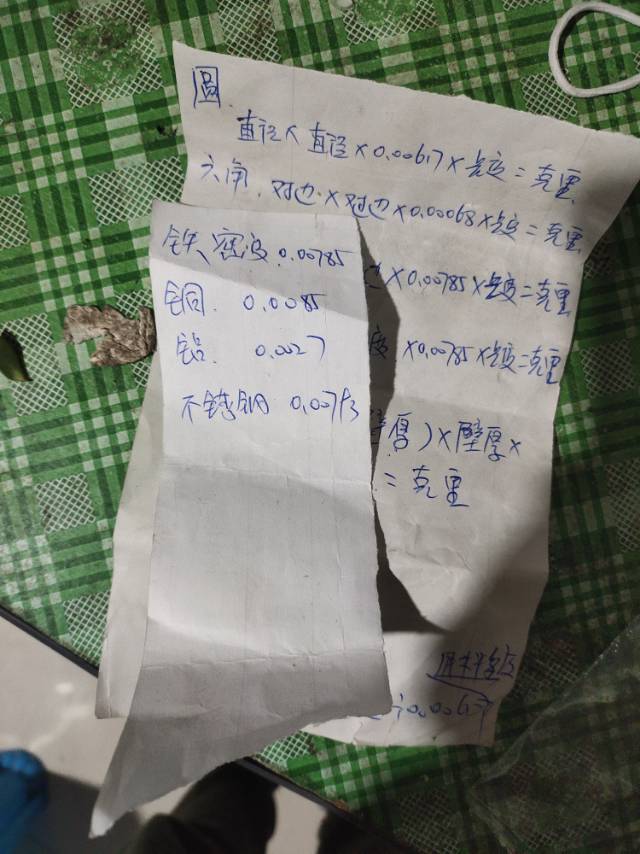 圆
直径×直径×0.00617×长度=克重
六角.对边×对边×0.00068×长度=克重
×0.00785×长度=克重
度×0.00785×长度=克重
壁厚)×壁厚×
=克重
铁密度 0.00785
铜. 0.0085
铝. 0.0027
不锈钢 0.00793